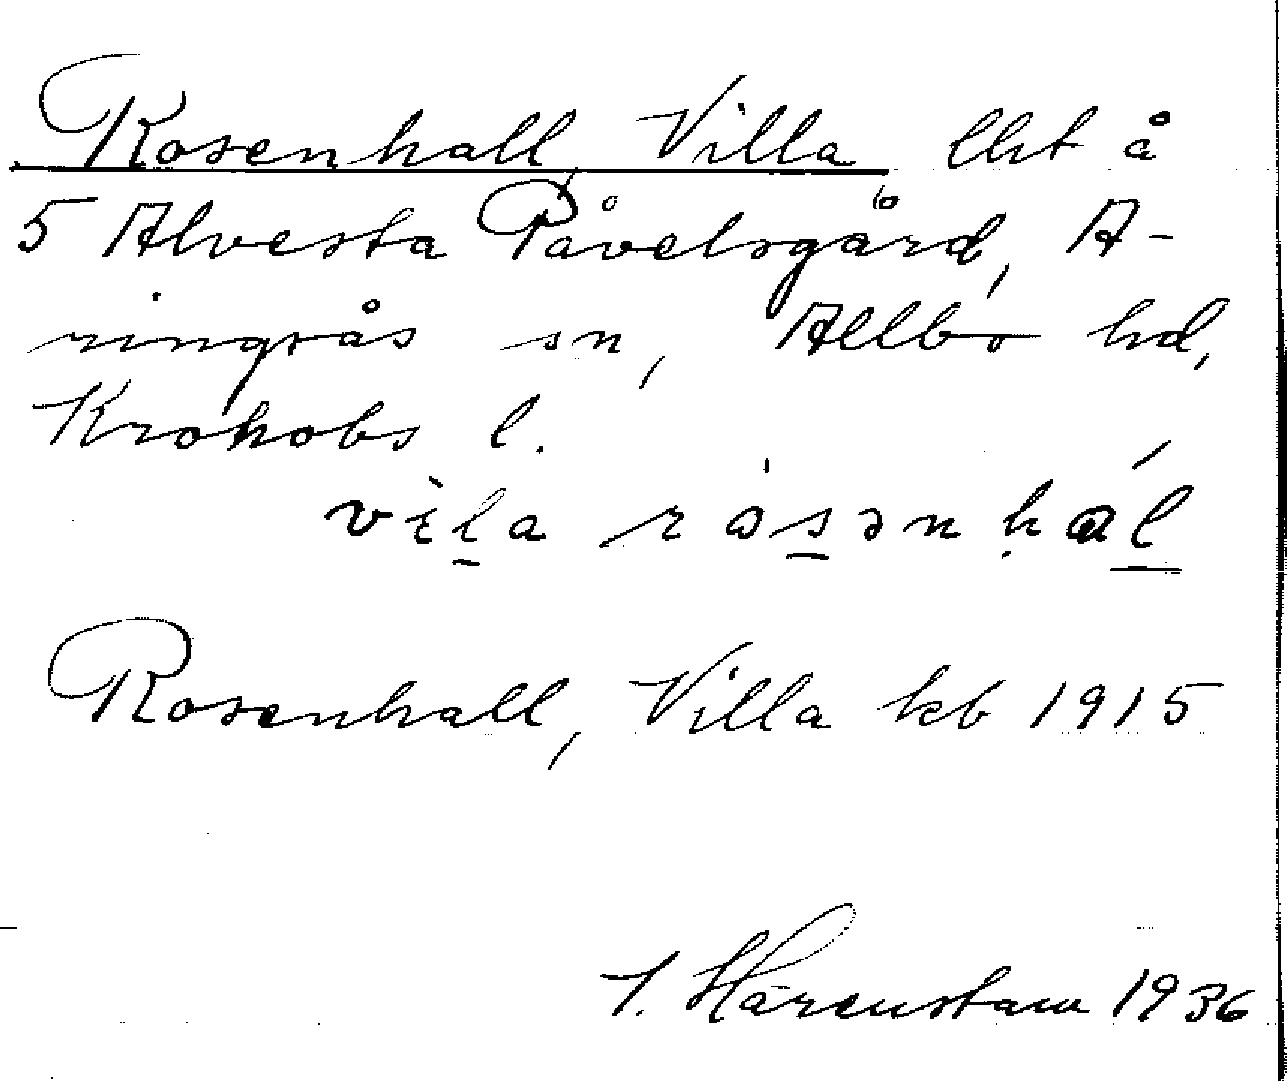 Rosenhall, Villa lht å
5 Alvesta Påvelsgård, A-
ringsås sn, Allbo hd,
Kronobs l.
vìla rósənhál
Rosenhall, Villa kb 1915
Härenstam 1936